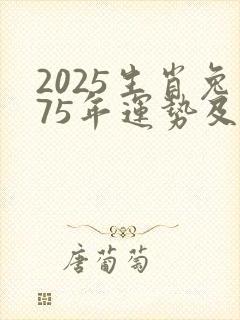 2025生肖兔
75年運势及
唐葡萄